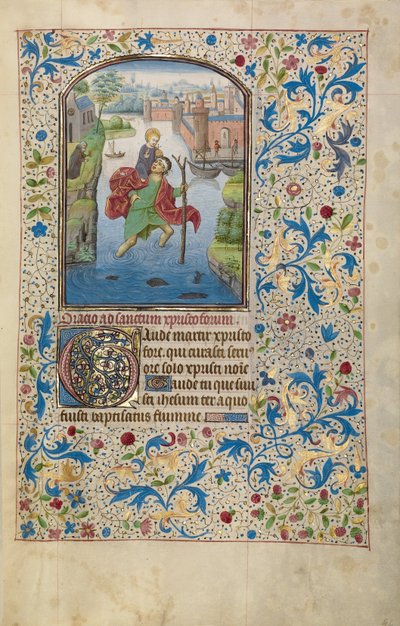 Oracio ad sanctum xpristoforum
Gaude martir xpristo
fore. qui curasti seru
ire solo xpristi noīe
Gaude tu que
sti ihesum ter a quo
fuisti baptisatus flumine